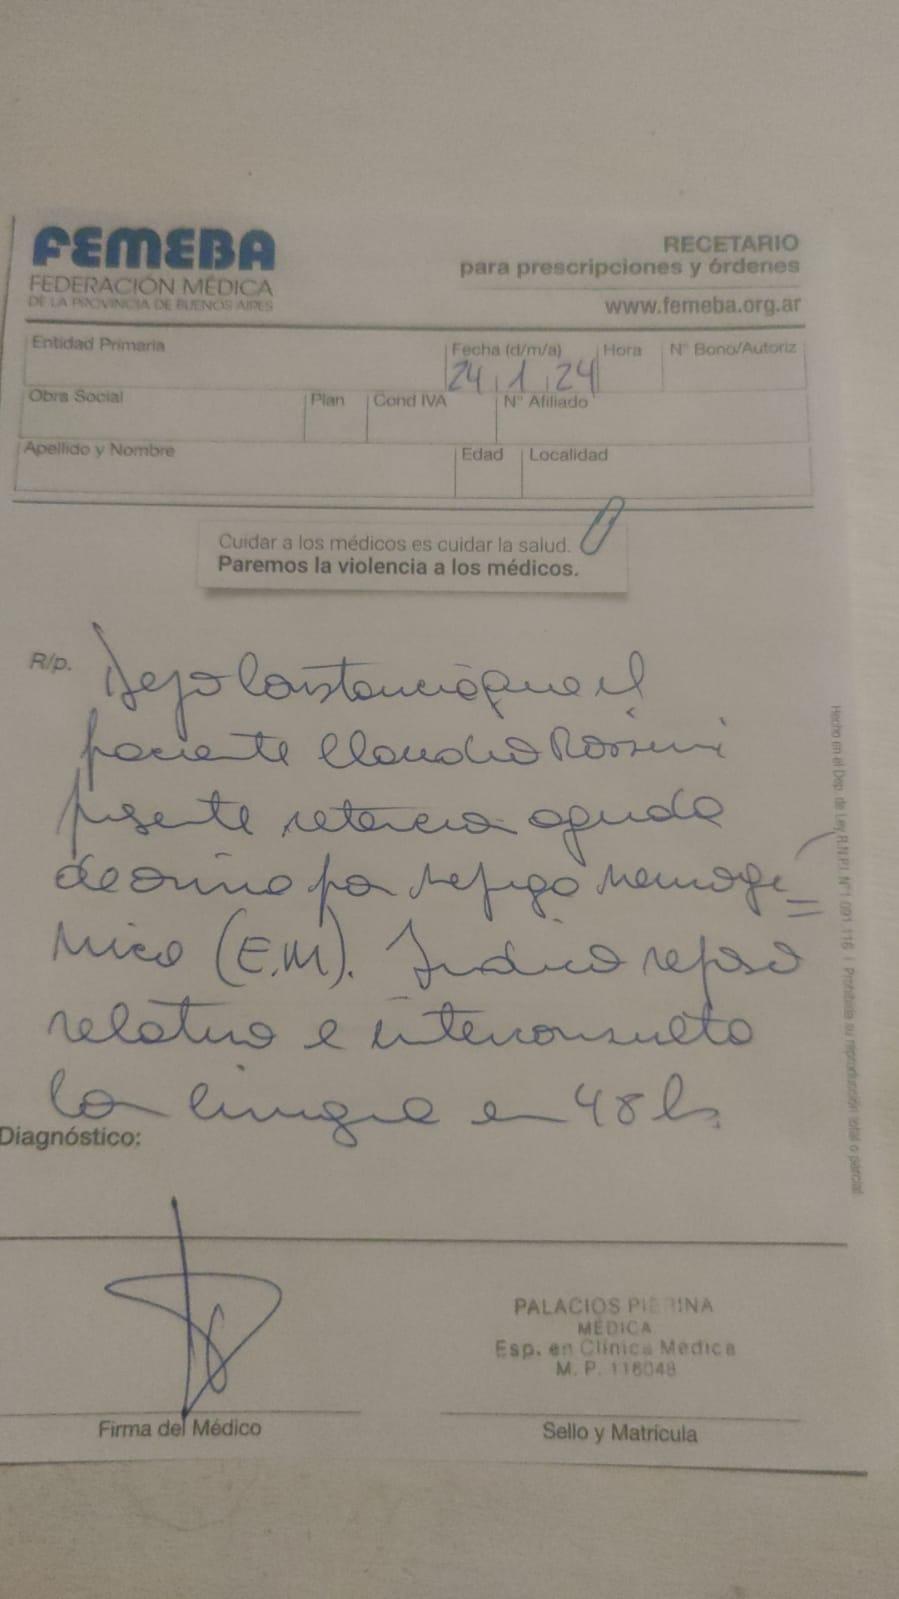 FEMEBA
FEDERACIÓN MÉDICA
DE LA PROVINCIA DE BUENOS AIRES
RECETARIO
para prescripciones y órdenes
www.femeba.org.ar
Entidad Primaria
Fecha (d/m/a)
24 1 24
Hora
N° Bono/Autoriz
Obra Social
Plan
Cond IVA
N° Afiliado
Apellido y Nombre
Edad
Localidad
Cuidar a los médicos es cuidar la salud.
Paremos la violencia a los médicos.
R/p.
Dejo constancia que el
paciente Claudio
presente retencion aguda
de orina por
(E.M). Indico reposo
relativo e interconsulta
con cirugia en 48 hs
Diagnóstico:
Firma del Médico
PALACIOS PIERINA
MÉDICA
Esp. en Clínica Médica
M. P. 116048
Sello y Matrícula
Hecho en el Dep. de Ley R.N.P.I. N°1.091.116 | Prohibida su reproducción total o parcial